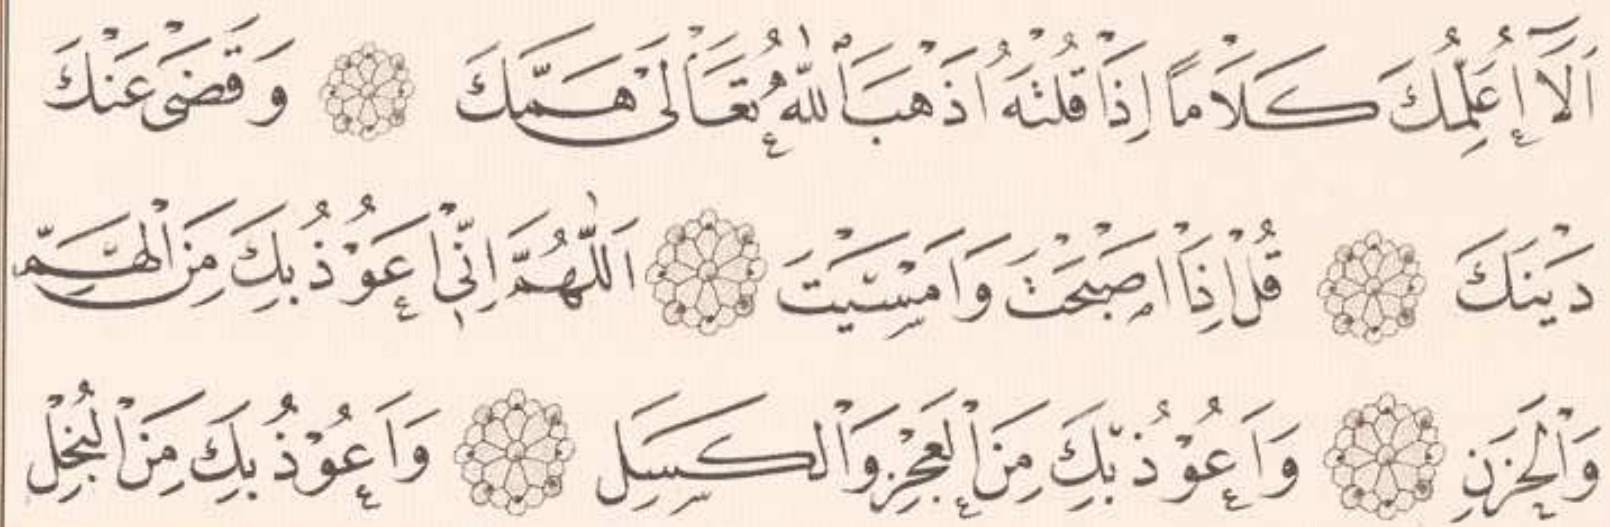 اَلَآ اُعَلِّمُكَ كَلَامًا اِذَا قُلْتَهُ اَذْهَبَ اللّٰهُ تَعَالٰى هَمَّكَ وَقَضٰى عَنْكَ
دَيْنَكَ قُلْ اِذَا اَصْبَحْتَ وَاَمْسَيْتَ اَللّٰهُمَّ اِنِّيْ اَعُوْذُ بِكَ مِنَ الْهَمِّ
وَالْحَزَنِ وَاَعُوْذُ بِكَ مِنَ الْعَجْزِ وَالْكَسَلِ وَاَعُوْذُ بِكَ مِنَ الْبُخْلِ